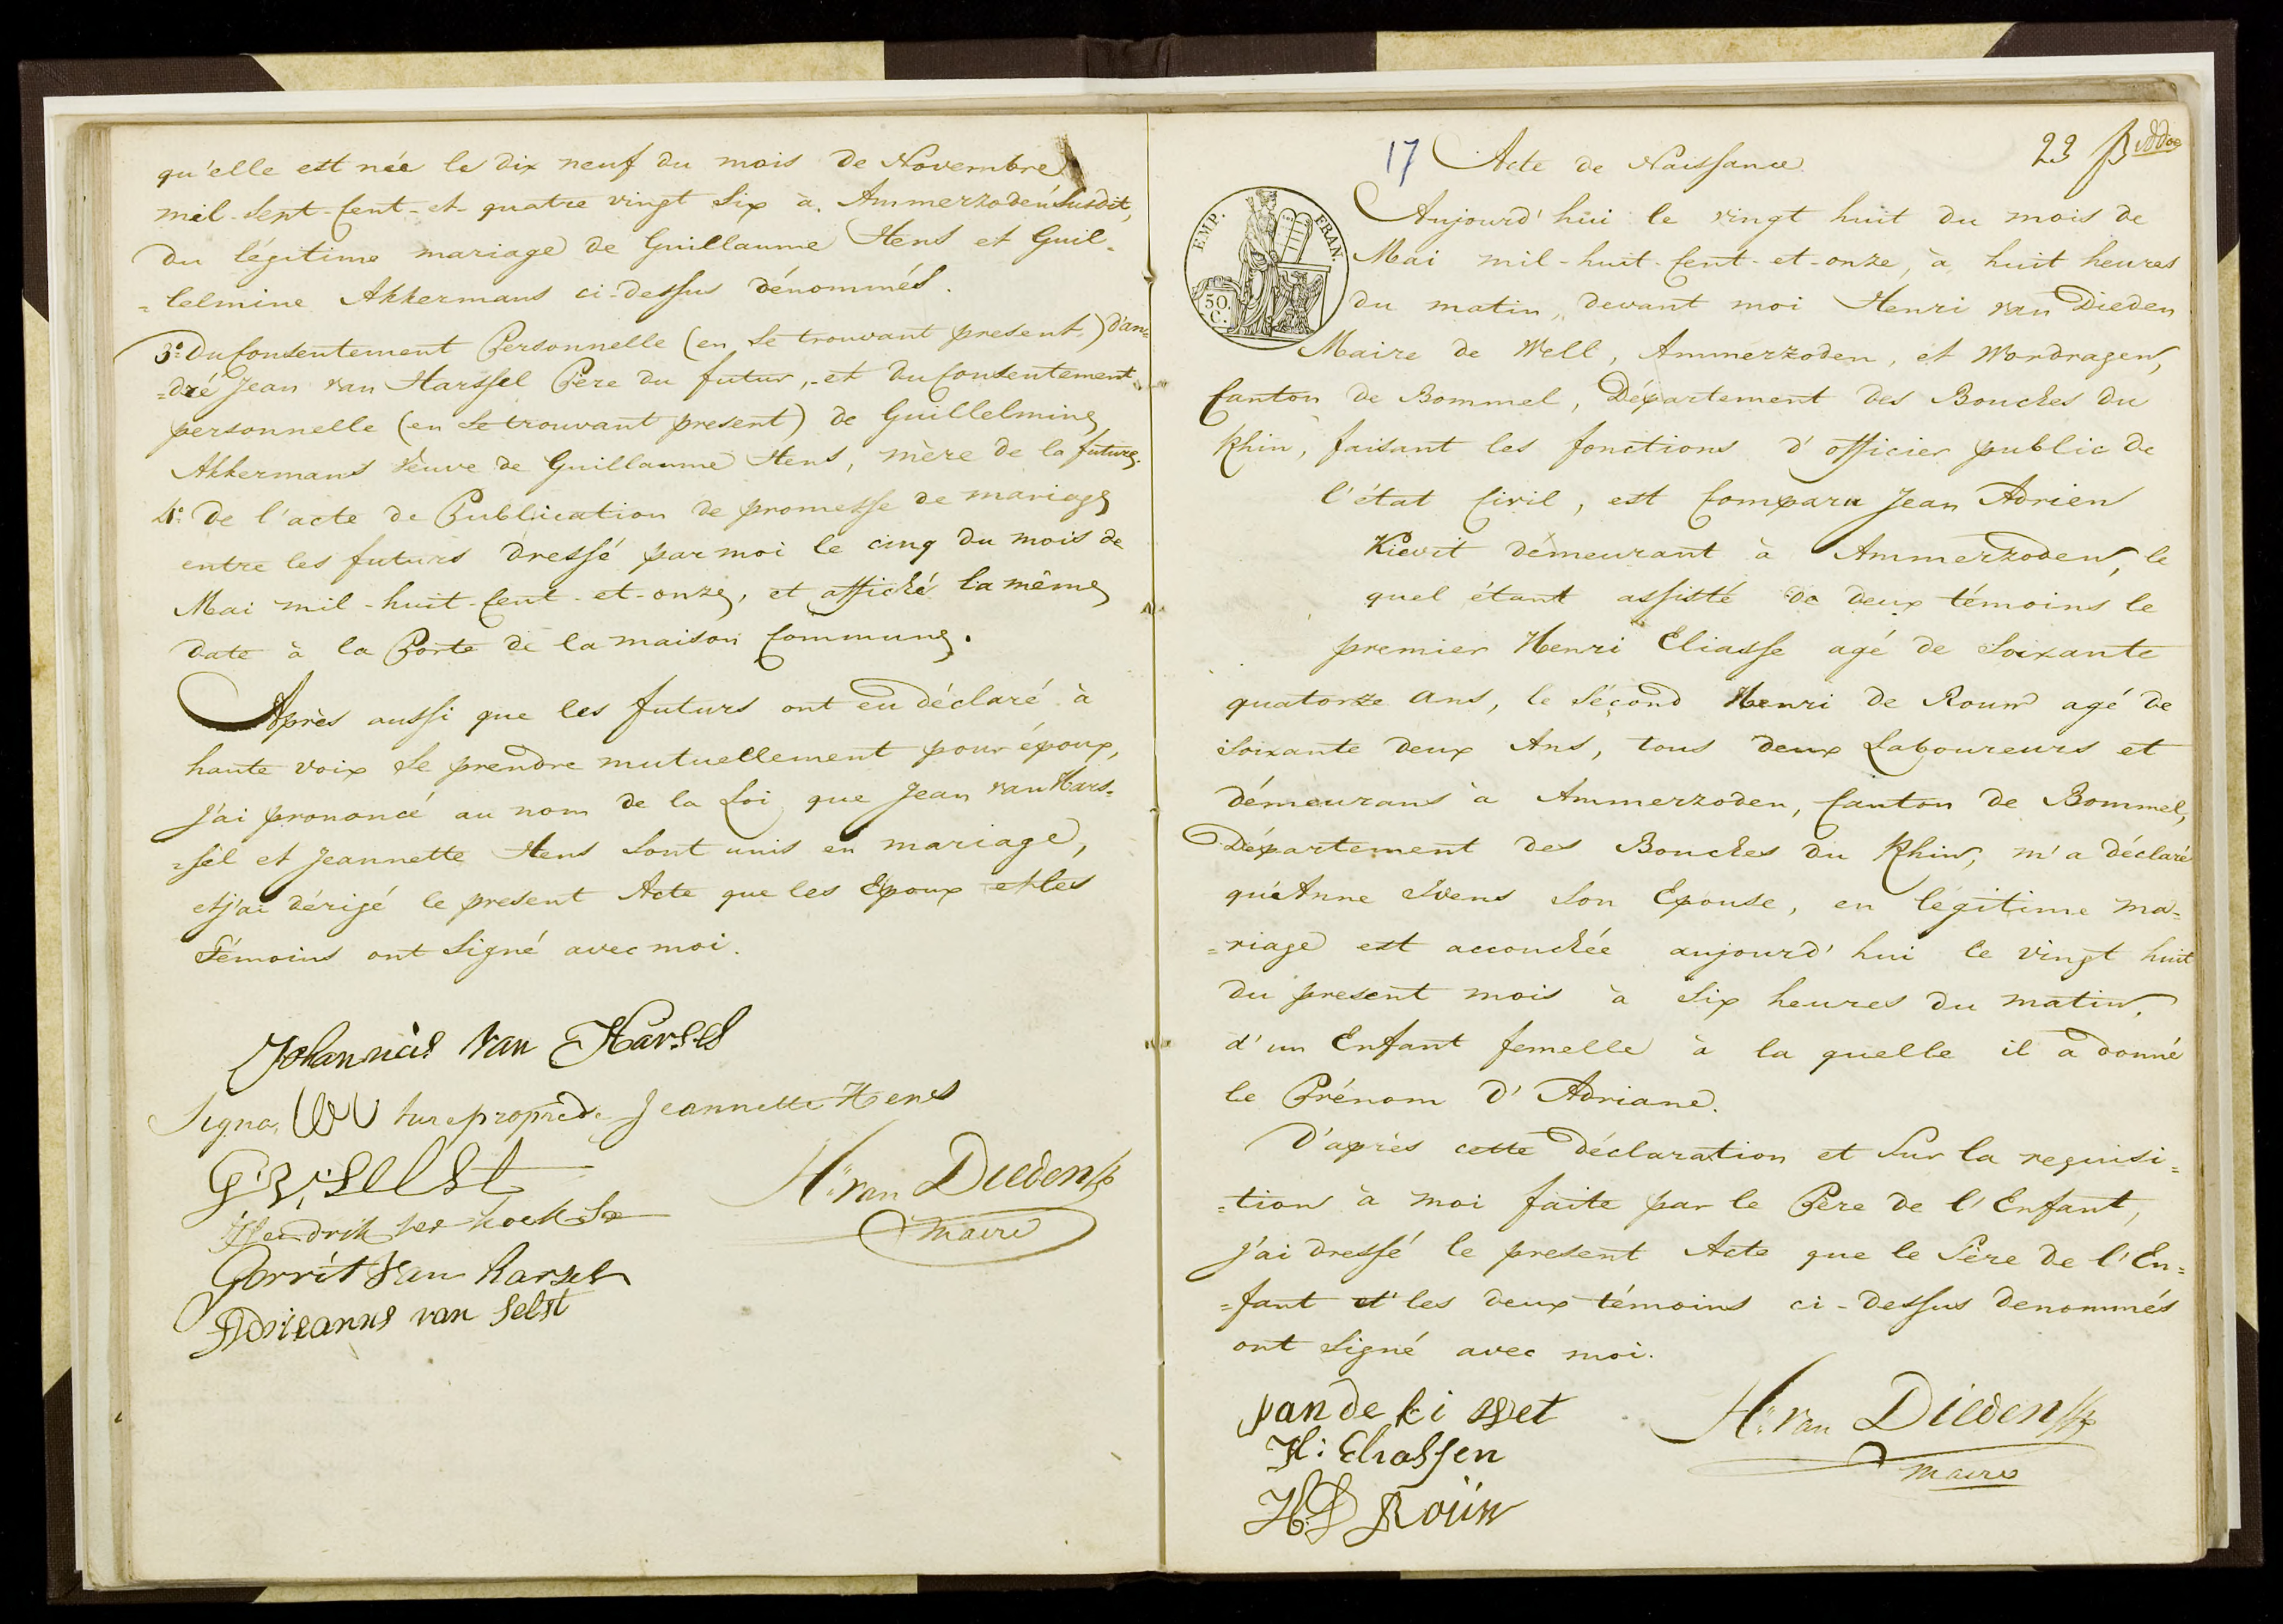 qu'elle est née le dix neuf du mois de Novembre
mil-sept-cent-et-quatre vingt six à Ammerzoden susdit,
du légitime mariage de Guillaume Hens et Guil-
=lelmine Akkermans ci-dessus dénommés.
3º Du Consentement Personnelle (en se trouvant present) d'an=
=dré Jean van Harssel Père du futur, et du Consentement
personnelle (en se trouvant present) de Guillelmine
Akkermans Veuve de Guillaume Hens, mère de la future.
4º De l'acte de Publication de promesse de mariage
entre les futurs dressé par moi le cinq du mois de
Mai mil-huit-cent-et-onze, et affiché la même
date à la Porte de la maison Commune.
Après aussi que les futurs ont eu déclaré à
haute voix se prendre mutuellement pour époux,
j'ai prononcé au nom de la Loi que Jean van Hars-
=sel et Jeannette Hens sont unis en mariage,
et j'ai dérigé le present Acte que les Epoux et les
Témoins ont signé avec moi.
Johannes van Harsel
Signa ture propre de Jeannette Hens
G V Selst
Hendrik
Gerrit van harsel
Adrieanus van Selst
H: van Dieden
maire
17 Acte de Naissance
23
EMP. FRAN.
50. C.
Aujourd'hui le vingt huit du mois de
Mai mil-huit-cent-et-onze, à huit heures
du matin, devant moi Henri van Dieden
Maire de Well, Ammerzoden, et Wordragen,
Canton de Bommel, Département des Bouches du
Rhin, faisant les fonctions d'officier public de
l'état Civil, est Comparu Jean Adrien
Kievit démeurant à Ammerzoden, le
quel étant assisté de deux témoins le
premier Henri Eliasse agé de soixante
quatorze ans, le sécond Henri de Roun agé de
soixante deux Ans, tous deux Laboureurs et
démeurans à Ammerzoden, Canton de Bommel,
Département des Bouches du Rhin, m'a déclaré
qu'Anne Svens son Epouse, en légitime ma=
=riage est accouchée aujourd'hui le vingt huit
du present mois à six heures du matin,
d'un Enfant femelle à la quelle il a donné
le Prénom d'Adriane.
D'après cette déclaration et sur la requisi=
=tion à moi faite par le Père de l'Enfant,
j'ai dressé le present Acte que le Père de l'En=
=fant et les deux témoins ci-dessus denommés
ont signé avec moi.
jan de ki wet
H: Eliassen
H D Roün
H: van Dieden
maire